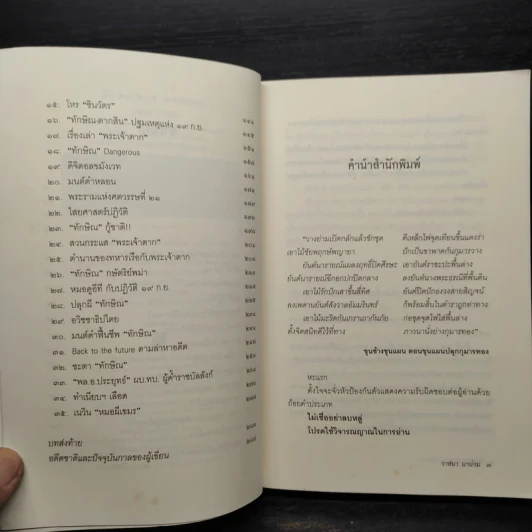 ๑๕. โหร "ชินวัตร"
๑๖. "ทักษิณ-ตากสิน" ปฐมเหตุแห่ง ๑๙ ก.ย.
๑๗. เรื่องเล่า "พระเจ้าตาก"
๑๘. "ทักษิณ" Dangerous
๑๙. ดีจิตอลขมังเวท
๒๐. มนต์ดำหลอน
๒๑. พระรามแห่งศตวรรษที่ ๒๑
๒๒. ไสยศาสตร์ปฏิวัติ
๒๓. "ทักษิณ" กู้ชาติ!!
๒๔. สวนกระแส "พระเจ้าตาก"
๒๕. ตำนานของทหารเรือกับพระเจ้าตาก
๒๖. "ทักษิณ" กษัตริย์พม่า
๒๗. หมอดูอีที กับปฏิวัติ ๑๙ ก.ย.
๒๘. ปลุกผี "ทักษิณ"
๒๙. อวิชชาธิปไตย
๓๐. มนต์ดำฟื้นชีพ "ทักษิณ"
๓๑. Back to the future ตามล่าหาอดีต
๓๒. ชะตา "ทักษิณ"
๓๓. "พล.อ.ประยุทธ์" ผบ.ทบ. ผู้ค้ำราชบัลลังก์
๓๔. ทำเนียบฯ เลือด
๓๕. เนวิน "หมอผีเขมร"
บทส่งท้าย
อดีตชาติและปัจจุบันกาลของผู้เขียน
คำนำสำนักพิมพ์
"วางย่ามเปิดกลักแล้วชักชุด ตีเหล็กไฟจุดเทียนขึ้นแดงร่า
เอาไม้ชัยพฤกษ์พญายา ปักเป็นขาพาดกันกุมารวาง
ยันต์นารายณ์แผลงฤทธิ์ปิดศีรษะ เอายันต์ราชะปะพื้นล่าง
ยันต์นารายณ์ฉีกอกปกปิดกลาง ลงยันต์นางพระธรณีที่พื้นดิน
เอาไม้รักปักเสาขึ้นสี่ทิศ ยันต์ปิดปักธงวงสายสิญจน์
ลงเพดานยันต์สังวาลอัมรินทร์ ก็พร้อมสิ้นในตำราถูกท่าทาง
เอาไม้มะริดกันเกราเถากันภัย ก่อชุดจุดไฟใส่พื้นล่าง
ตั้งจิตสนิทดีไว้ที่ทาง ภาวนานั่งย่างกุมารทอง"
ขุนช้างขุนแผน ตอนขุนแผนปลุกกุมารทอง
หะแรก
ตั้งใจจะจั่วหัวป้องกันตัวแสดงความรับผิดชอบต่อผู้อ่านด้วย
ถ้อยคำประเภท
ไม่เชื่ออย่าลบหลู่
โปรดใช้วิจารณญาณในการอ่าน
วาสนา นาน่วม ๗